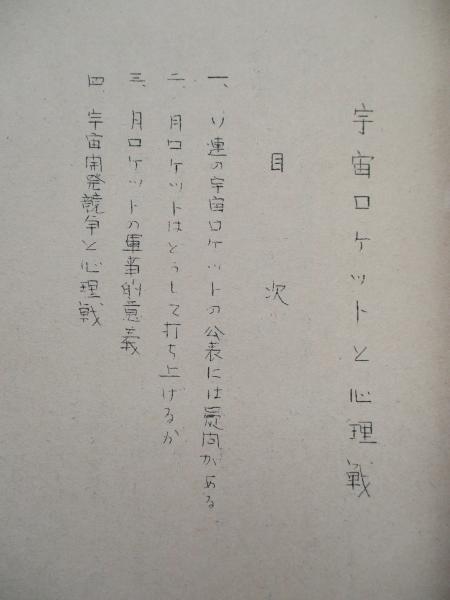 宇宙ロケットと心理戦
目次
一、ソ連の宇宙ロケットの公表には疑問がある
二、月ロケットはどうして打ち上げるか
三、月ロケットの軍事的意義
四、宇宙開発競争と心理戦